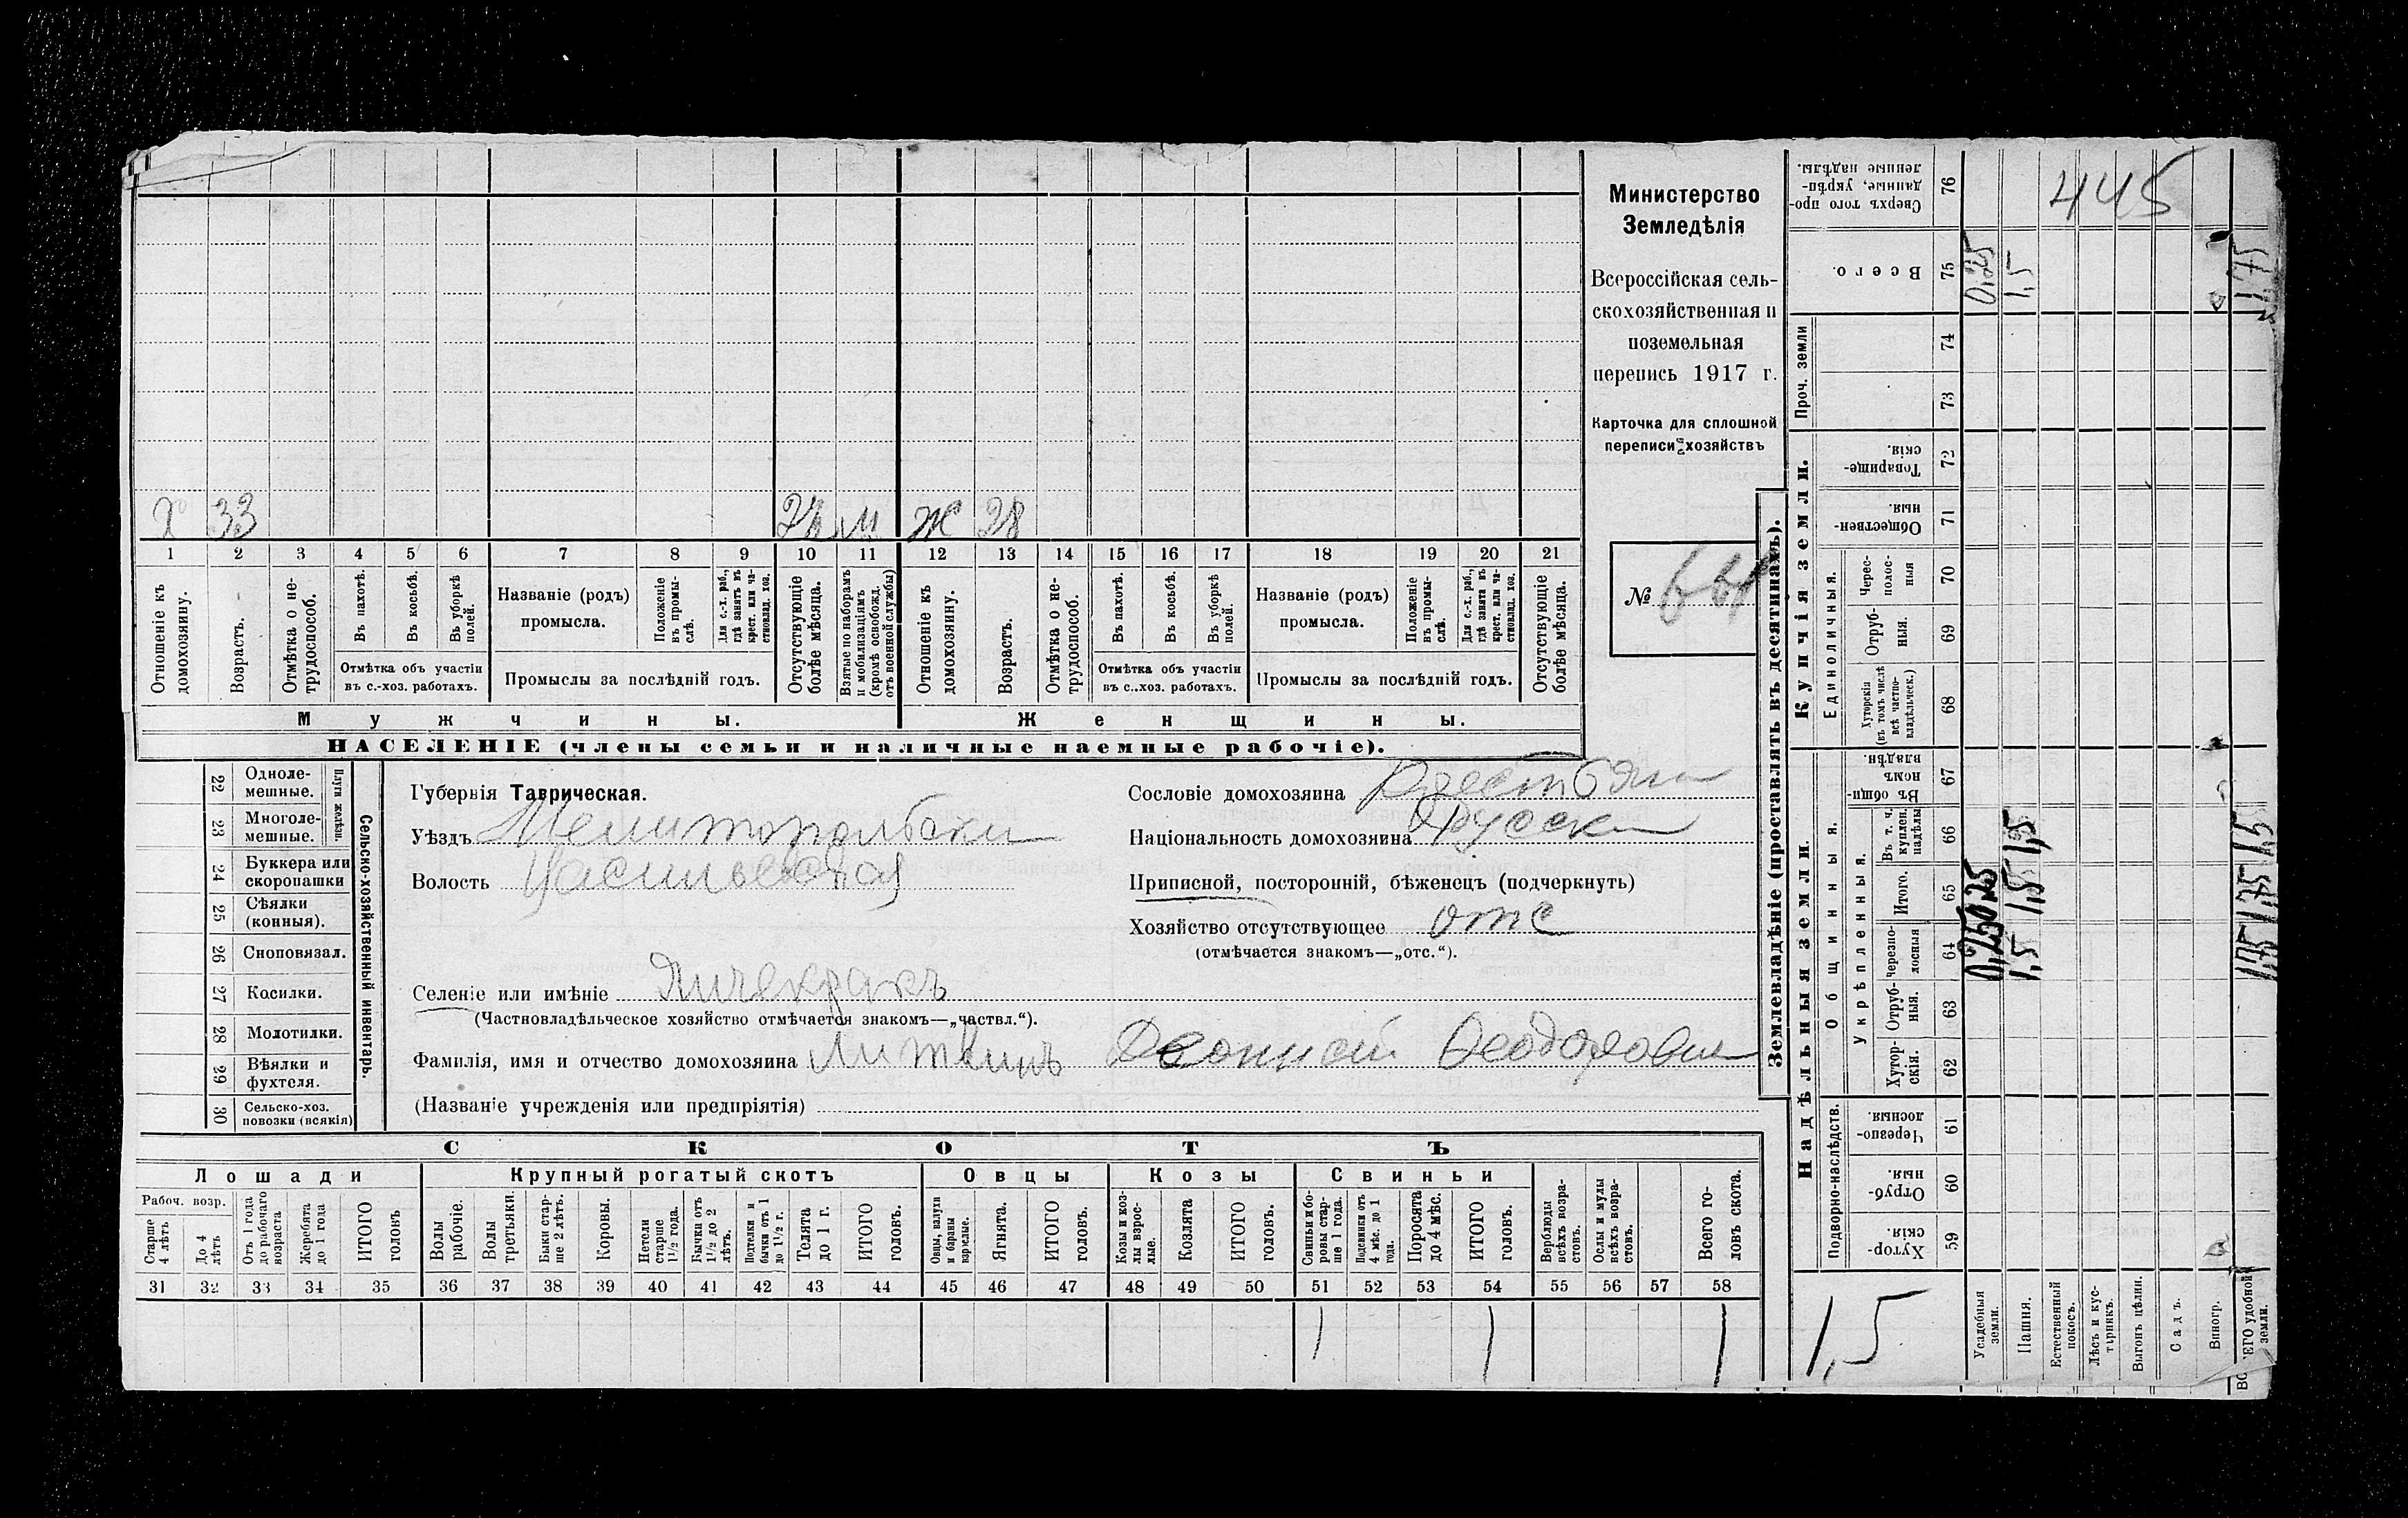 Х 33 24 м Ж 28
1 2 3 4 5 6 7 8 9 10 11 12 13 14 15 16 17 18 19 20 21
Отношеніе къ домохозяину.
Возрастъ.
Отмѣтка о не-трудоспособ.
Въ пахотѣ.
Въ косьбѣ.
Въ уборкѣ полей.
Отмѣтка объ участіи
въ с.-хоз. работахъ.
Названіе (родъ)
промысла.
Положеніе въ промы-слѣ.
Для с.-х. раб., гдѣ занятъ въ крест. или ча-стновлад. хоз.
Промыслы за послѣдній годъ.
Отсутствующіе болѣе мѣсяца.
Взятые по наборамъ и мобилизаціямъ (кромѣ освобожд. отъ военной службы)
Отношеніе къ домохозяину.
Возрастъ.
Отмѣтка о не-трудоспособ.
Въ пахотѣ.
Въ косьбѣ.
Въ уборкѣ полей.
Отмѣтка объ участіи
въ с.-хоз. работахъ.
Названіе (родъ)
промысла.
Положеніе въ промы-слѣ.
Для с.-х. раб., гдѣ занята въ крест. или ча-стновлад. хоз.
Промыслы за послѣдній годъ.
Отсутствующіе болѣе мѣсяца.
Мужчины. Женщины.
НАСЕЛЕНІЕ (члены семьи и наличные наемные рабочіе).
Министерство
Земледѣлія
Всероссійская сель-
скохозяйственная и
поземельная
перепись 1917 г.
Карточка для сплошной
переписи хозяйствъ
№
Сельско-хозяйственный инвентарь.
Плуги желѣзн.
22 Одноле-мешные.
23 Многоле-мешные.
24 Буккера или скоропашки
25 Сѣялки (конныя).
26 Сноповязал.
27 Косилки.
28 Молотилки.
29 Вѣялки и фухтеля.
30 Сельско-хоз. повозки (всякія)
Губернія Таврическая.
Уѣздъ Мелитопольски
Волость Васильевская
Селеніе или имѣніе Янчекракъ
(Частновладѣльческое хозяйство отмѣчается знакомъ—„частвл.“).
Фамилія, имя и отчество домохозяина Литвинъ Деонисій Феодорови
(Названіе учрежденія или предпріятія)
Сословіе домохозяина Крестьян
Національность домохозяина Русски
Приписной, посторонній, бѣженецъ (подчеркнуть)
Хозяйство отсутствующее отс
(отмѣчается знакомъ—„отс.“).
СКОТЪ
Лошади Крупный рогатый скотъ Овцы Козы Свиньи
Рабоч. возр.
Старше 4 лѣтъ
До 4 лѣтъ
Отъ 1 года до рабочаго возраста
Жеребята до 1 года
ИТОГО головъ
Волы рабочіе.
Волы третьяки.
Быки стар-ше 2 лѣтъ.
Коровы.
Нетели старше 1½ года.
Бычки отъ 1½ до 2 лѣтъ.
Подтелки и бычки отъ 1 до 1½ г.
Телята до 1 г.
ИТОГО головъ.
Овцы, валухи и бараны взрослые.
Ягнята.
ИТОГО головъ.
Козы и коз-лы взрос-лые.
Козлята
ИТОГО головъ.
Свиньи и бо-ровы стар-ше 1 года.
Подсвинки отъ 4 мѣс. до 1 года.
Поросята до 4 мѣс.
ИТОГО головъ.
Верблюды всѣхъ возра-стовъ.
Ослы и мулы всѣхъ возра-стовъ.
Всего го-ловъ скота.
31 32 33 34 35 36 37 38 39 40 41 42 43 44 45 46 47 48 49 50 51 52 53 54 55 56 57 58
1 1 1
Землевладѣніе (проставлять въ десятинахъ).
Надѣльныя земли. Купчія земли. Проч. земли
Подворно-наслѣдств.
Общинныя.
Укрѣпленныя.
Единоличныя.
Хутор-скія. 59
Отруб-ныя. 60
Черезпо-лосныя. 61
Хутор-скія. 62
Отруб-ныя. 63
Черезпо-лосныя 64
Итого. 65
Въ т. ч. куплен. надѣлы 66
Въ общин-номъ владѣн. 67
Хуторскія (въ томъ числѣ всѣ частно-владѣльческ.) 68
Отруб-ныя. 69
Черес-полос-ныя 70
Обществен-ныя. 71
Товарище-скія. 72
73
74
Всего. 75
Сверхъ того про-данные, укрѣп-ленные надѣлы. 76
445
1,5
Усадебныя земли. 0,25 0,25 0,25
Пашня. 1,5 1,5 1,5 1,5
Естественный покосъ.
Лѣсъ и кус-тарникъ.
Выгонъ цѣлин.
Садъ.
Виногр.
ВСЕГО удобной земли. 1,75 1,75 1,5 1,75